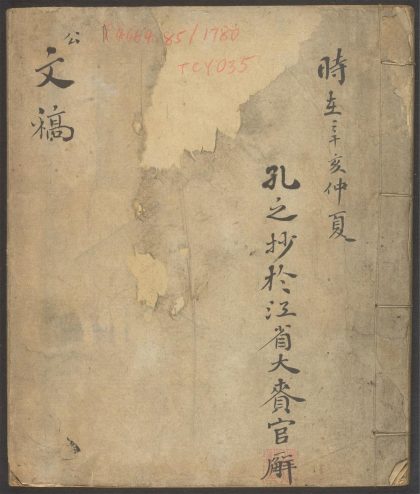 時在辛亥仲夏
孔之抄於江省大賚官廨
公文稿
85/1780
TCY035